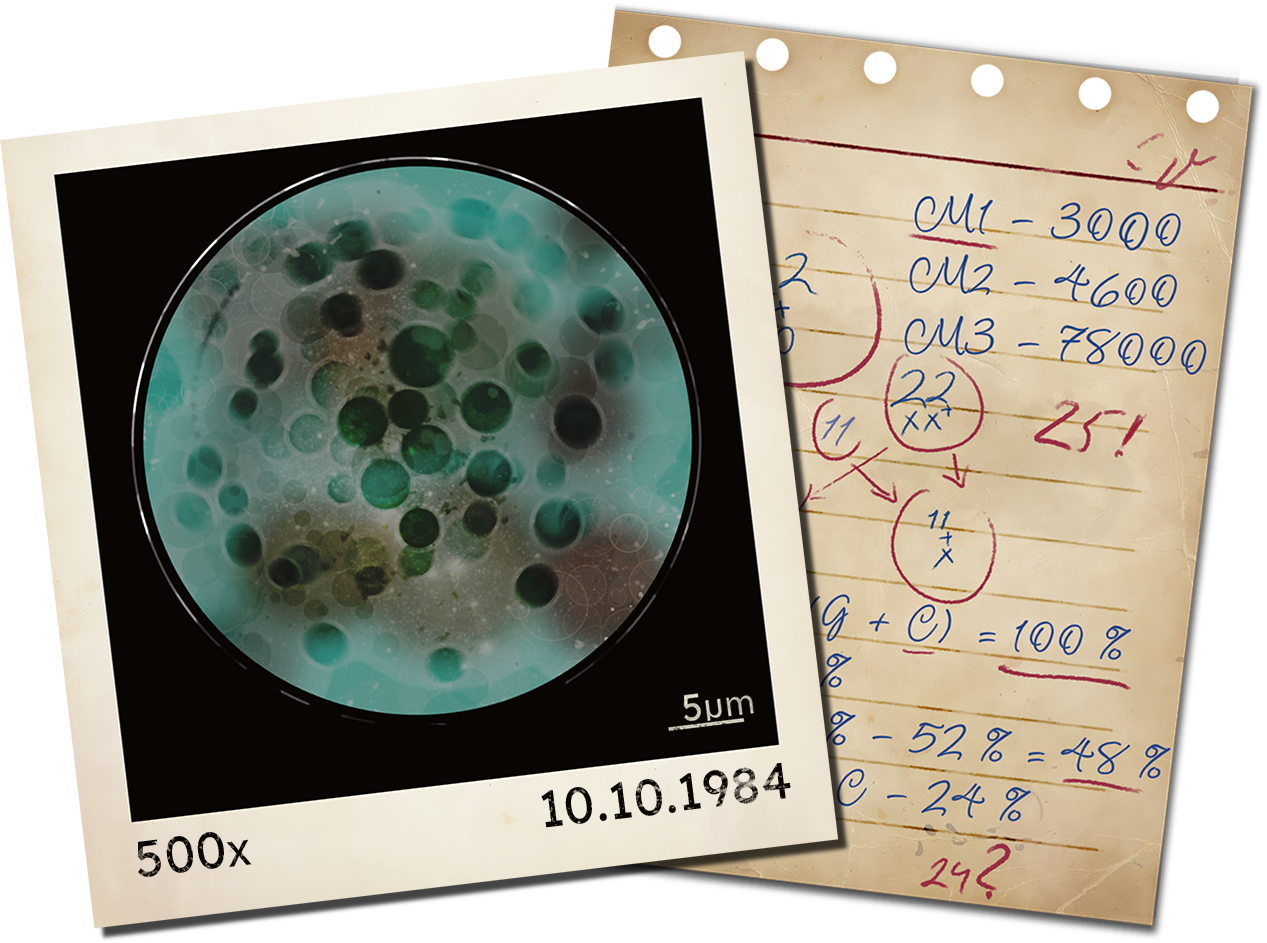 5µm
10.10.1984
500x
CM1 - 3000
2
CM2 - 4600
+
0
CM3 - 78000
22
xx+
11
25!
11
+
x
(G + C) = 100 %
%
% - 52 % = 48 %
C - 24 %
24?